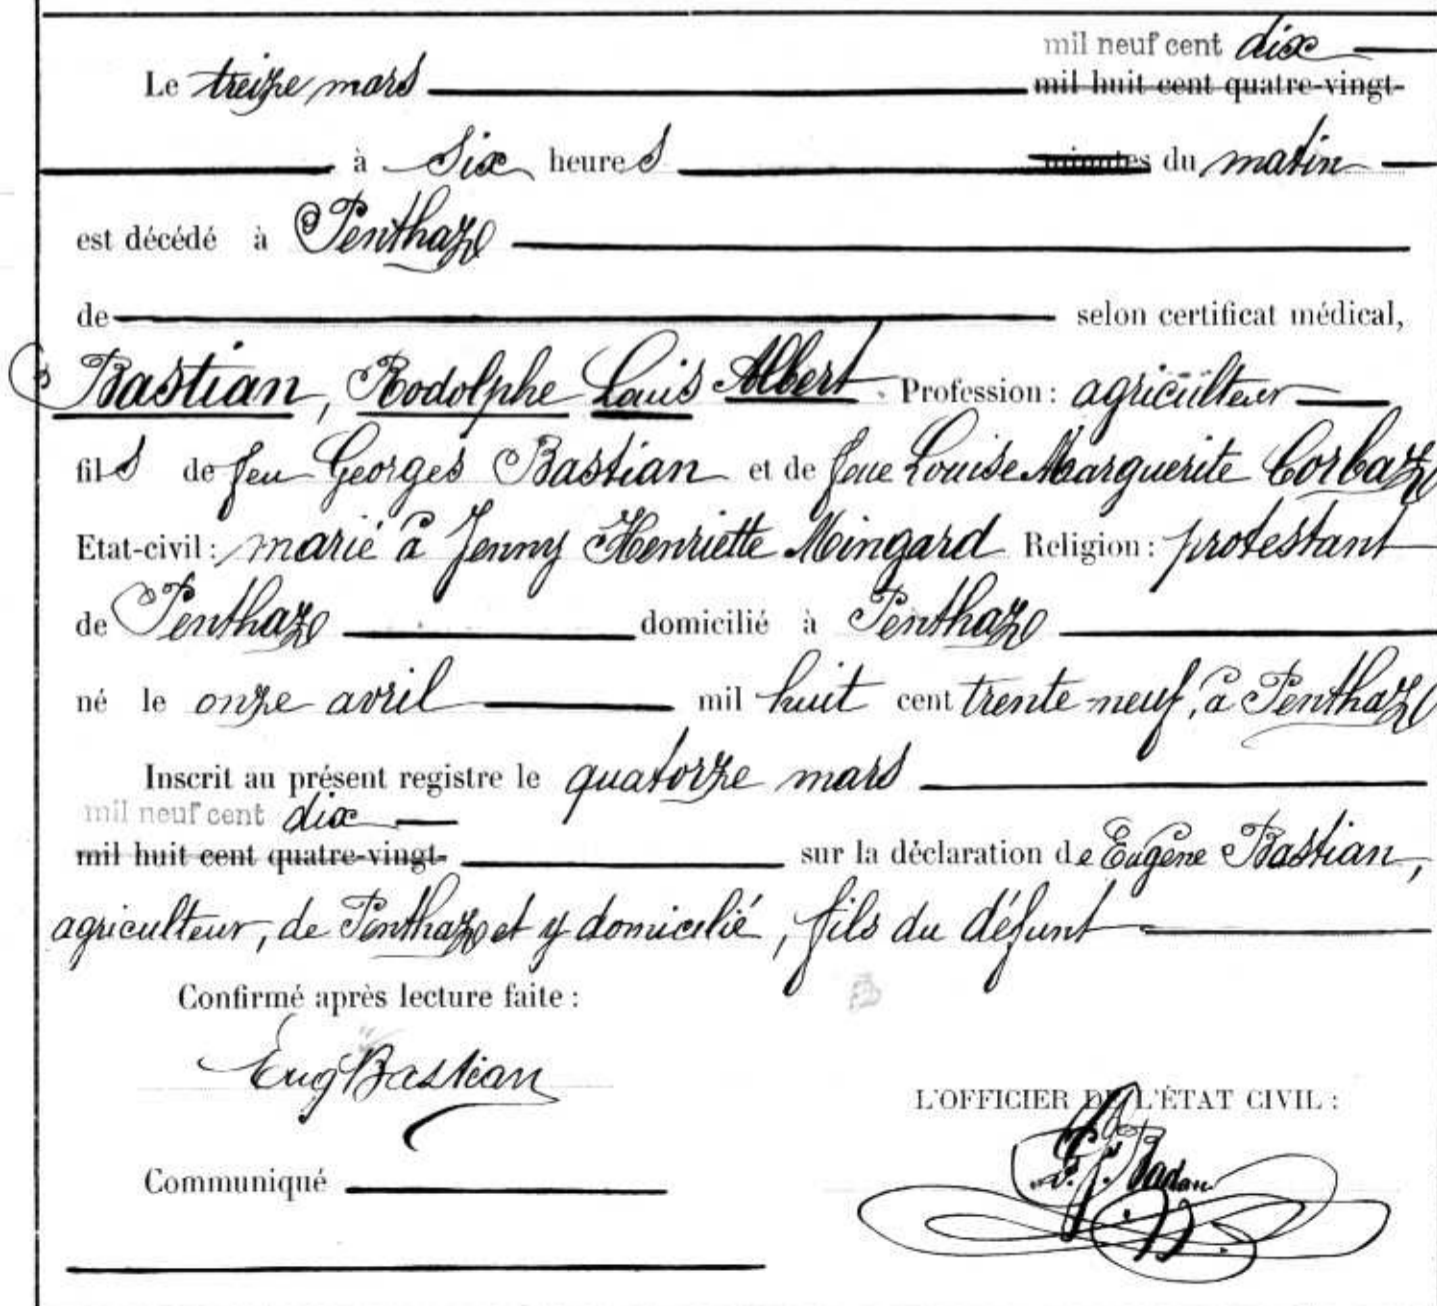 mil neuf cent dix
Le treize mars mil huit cent quatre-vingt-
à six heures minutes du matin
est décédé à Penthaz
de selon certificat médical,
Bastian, Rodolphe Louis Albert Profession : agriculteur
fils de feu Georges Bastian et de feue Louise Marguerite Corbaz
Etat-civil : marié à Jenny Henriette Mingard Religion : protestant
de Penthaz domicilié à Penthaz
né le onze avril mil huit cent trente neuf, à Penthaz
Inscrit au présent registre le quatorze mars
mil neuf cent dix
mil huit cent quatre-vingt- sur la déclaration de Eugène Bastian,
agriculteur, de Penthaz et y domicilié, fils du défunt
Confirmé après lecture faite :
Eug Bastian
L'OFFICIER DE L'ÉTAT CIVIL :
Communiqué